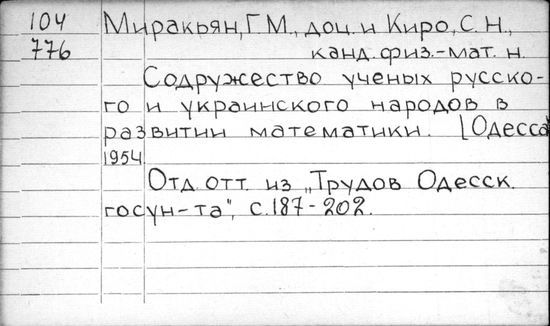 104 Миракьян, Г.М., доц. и Киро, С.Н.,
776 канд. физ.-мат. н.
Содружество ученых русско-
го и украинского народов в
развитии математики. [Одесса
1954
Отд. отт. из „Трудов Одесск.
госун-та", с. 187-202.